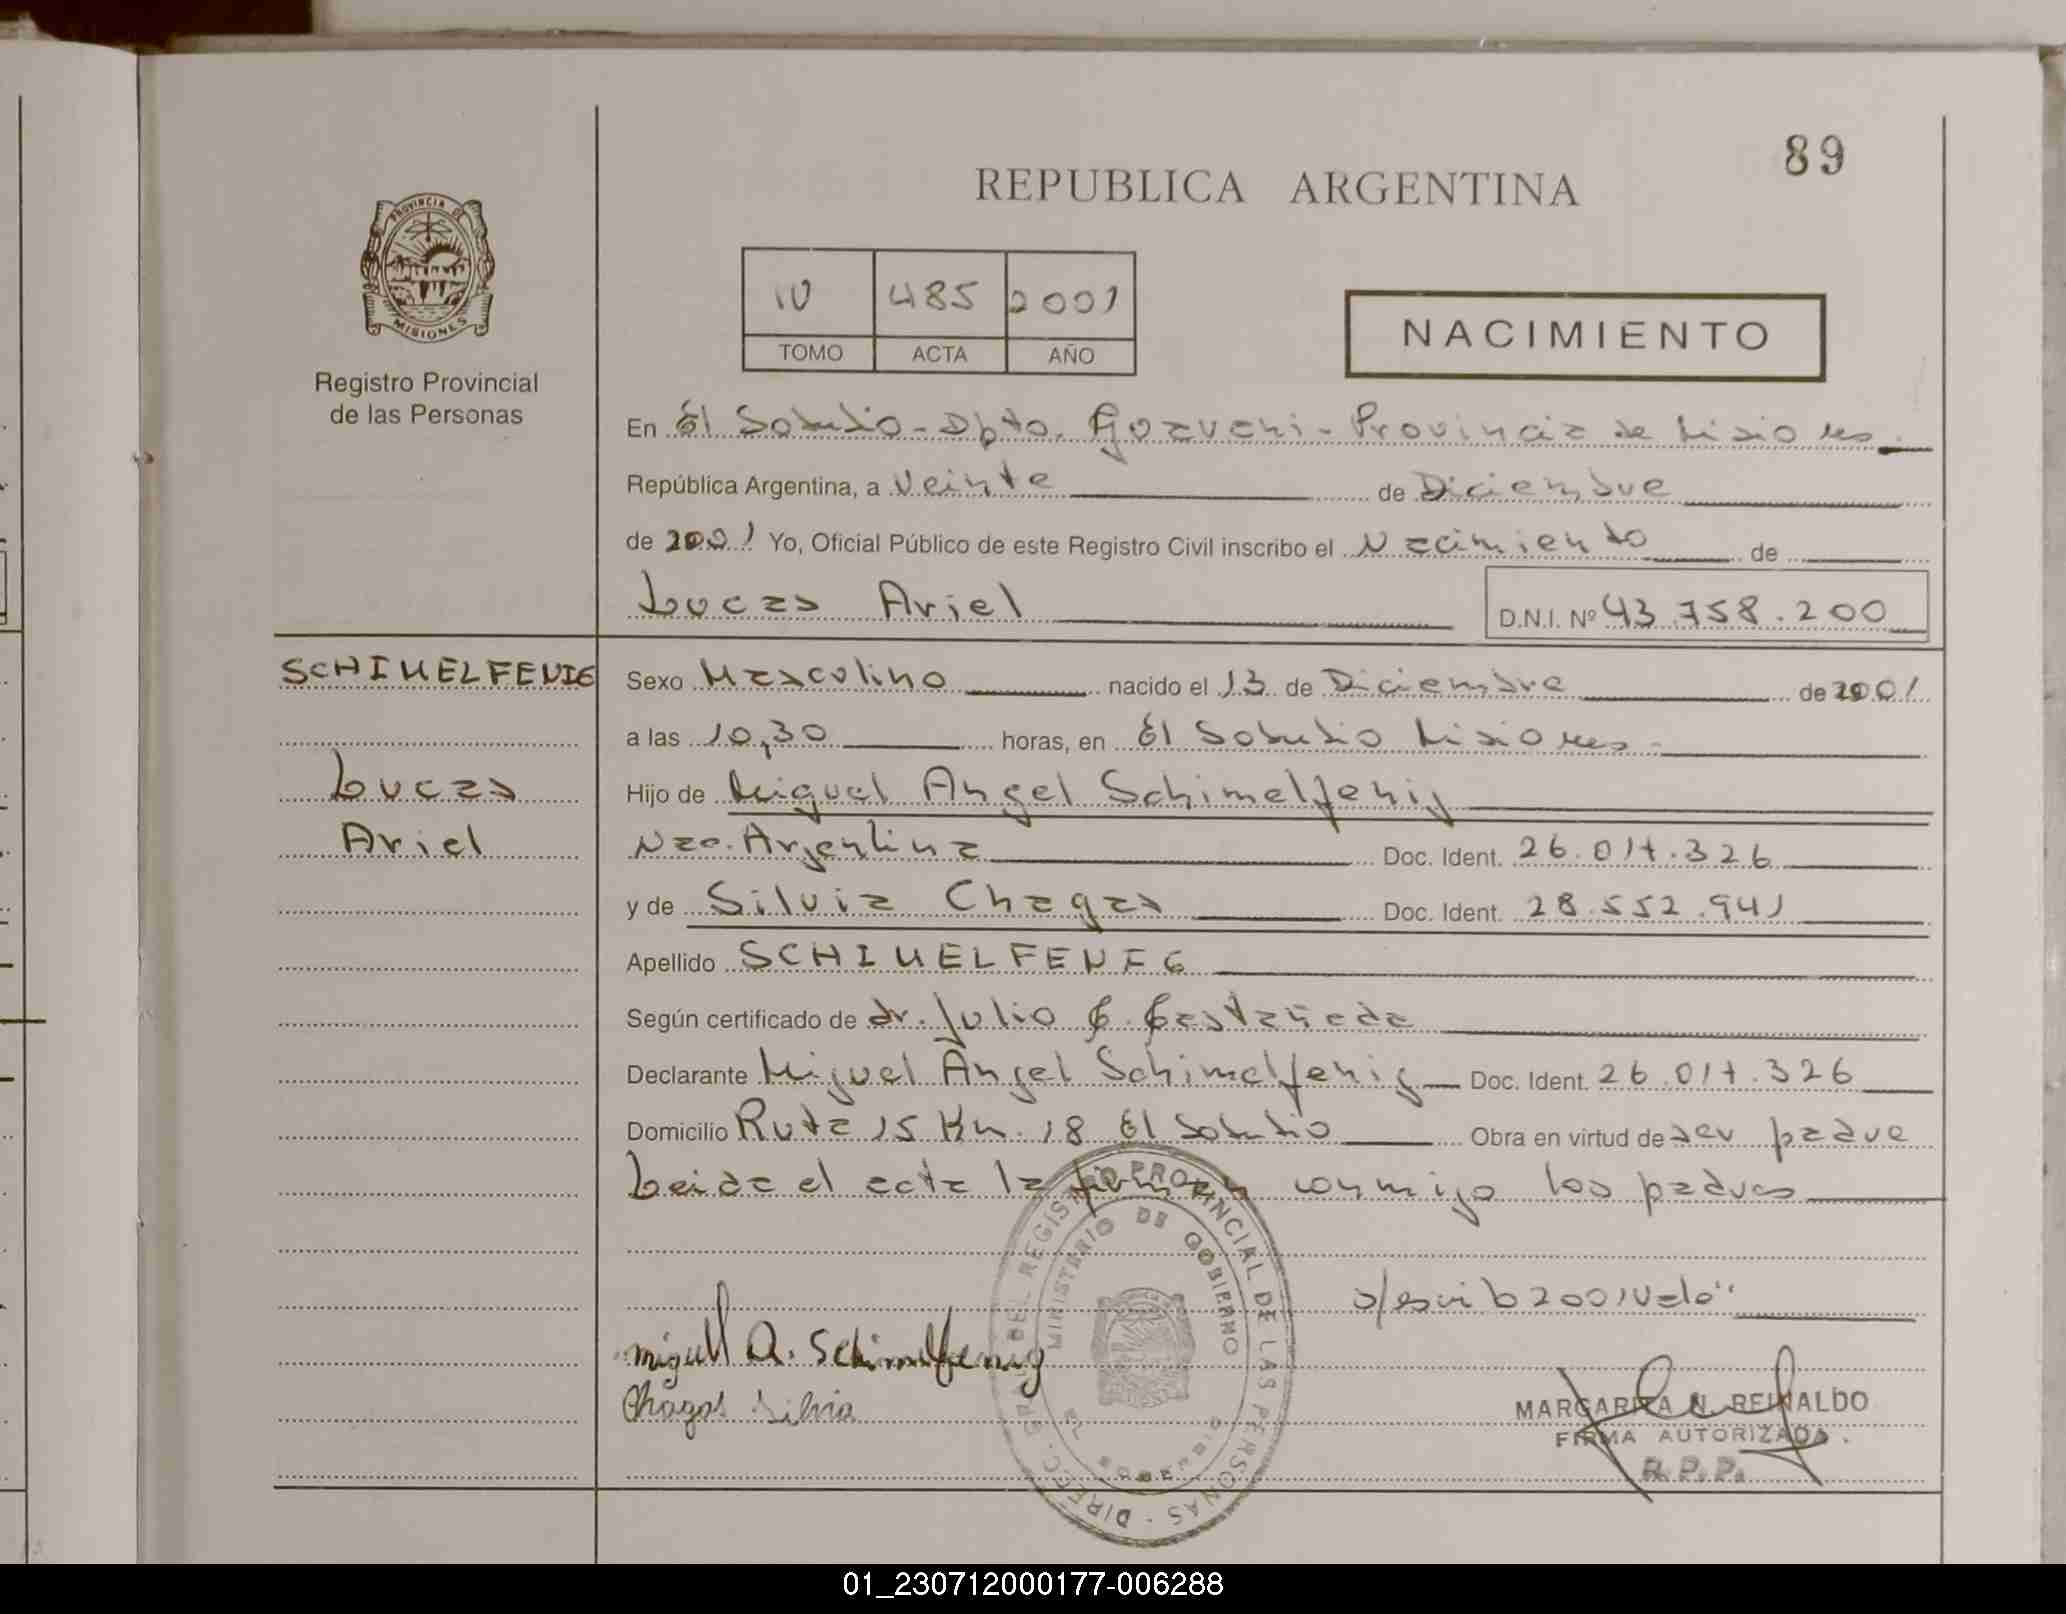 89
REPUBLICA ARGENTINA
PROVINCIA DE
MISIONES
Registro Provincial
de las Personas
IV 485 2001
TOMO ACTA AÑO
NACIMIENTO
En El Soberbio - Dpto. Guarani - Provincia de Misiones
República Argentina, a Veinte de Diciembre
de 2001 Yo, Oficial Público de este Registro Civil inscribo el Nacimiento de
Lucas Ariel D.N.I. Nº 43.758.200
SCHIMELFENIG
Lucas
Ariel
Sexo Masculino nacido el 13 de Diciembre de 2001
a las 10,30 horas, en El Soberbio Misiones
Hijo de Miguel Angel Schimelfenig
Nac. Argentina Doc. Ident. 26.017.326
y de Silvia Chagas Doc. Ident. 28.552.941
Apellido SCHIMELFENEG
Según certificado de dr. Julio C. Castañeda
Declarante Miguel Angel Schimelfenig Doc. Ident. 26.017.326
Domicilio Ruta 15 Km. 18 El Soberbio Obra en virtud de ser padre
Leida el acta la firman conmigo los padres
s/escrib 2001 Vale"
miguel A. Schimelfenig
Chagas Silvia
DIREC. GRAL. DEL REGISTRO PROVINCIAL DE LAS PERSONAS
MINISTERIO DE GOBIERNO
EL SOBERBIO
MARGARITA N. REINALDO
FIRMA AUTORIZADA
R.P.P.
01_230712000177-006288